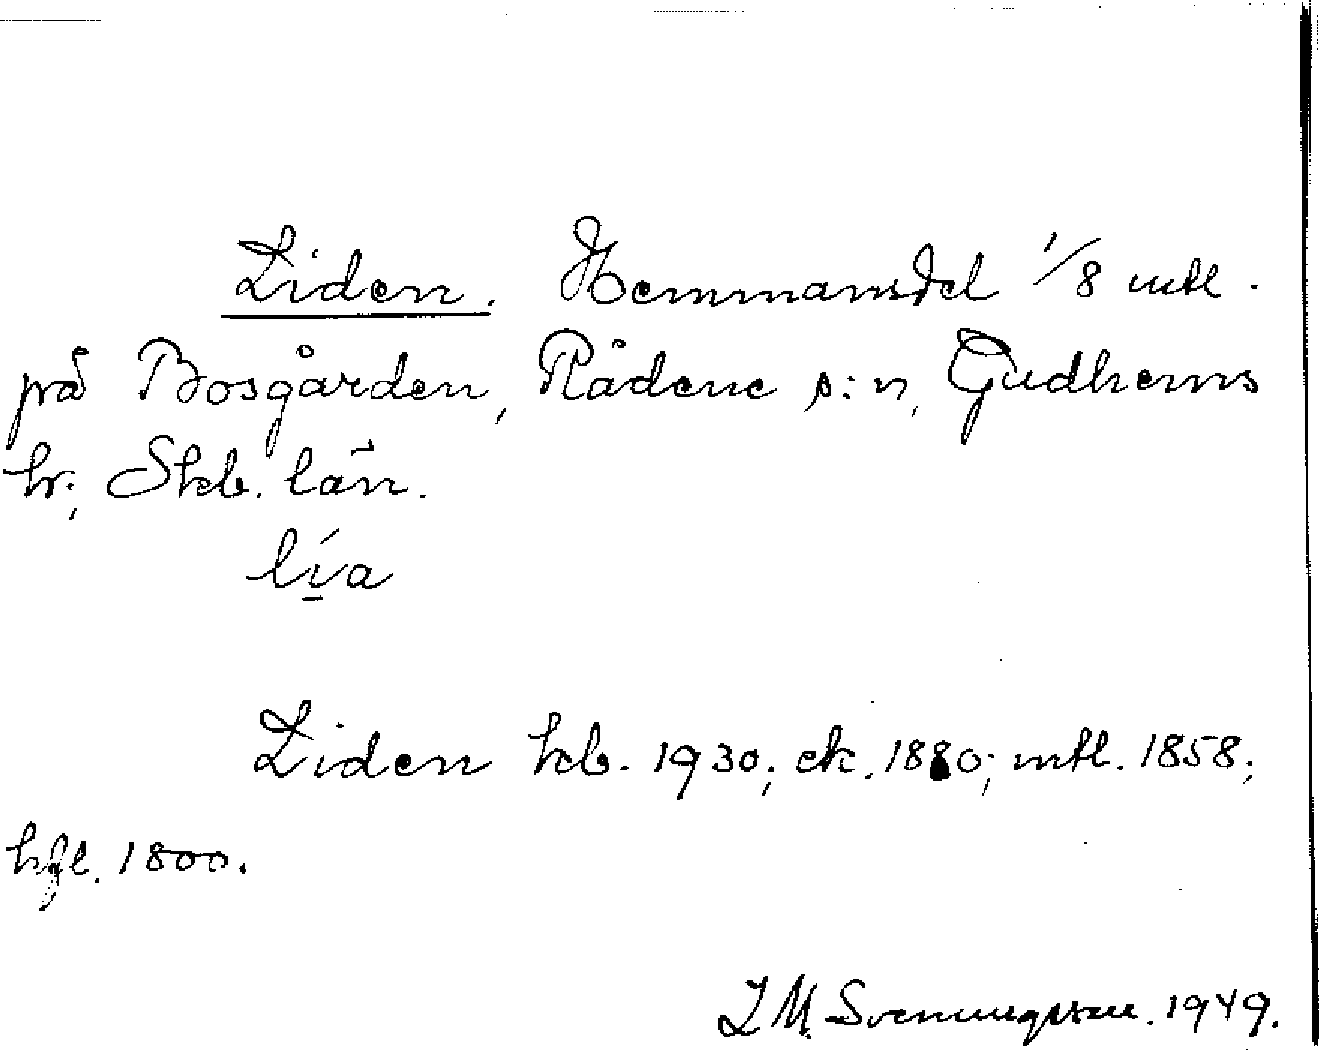 Liden. Hemmansdel 1/8 mtl.
på Bosgården, Rådene s:n, Gudhems
hr; Skb. län.
lía
Liden kb. 1930; ek. 1880; mtl. 1858;
hfl. 1800.
I M Svenungsson. 1949.